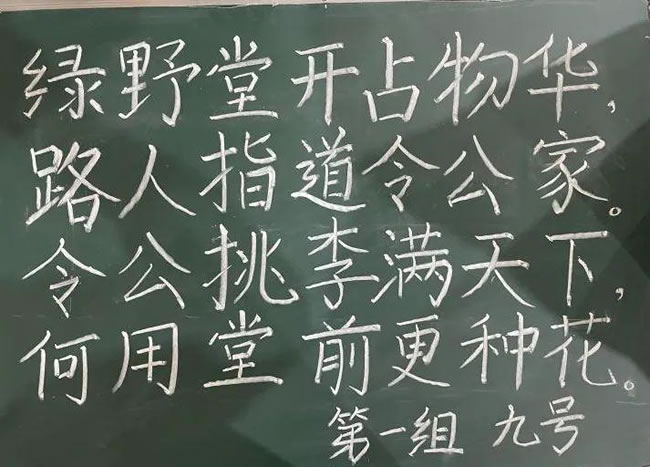 绿野堂开占物华,
路人指道令公家。
令公挑李满天下,
何用堂前更种花。
第一组 九号